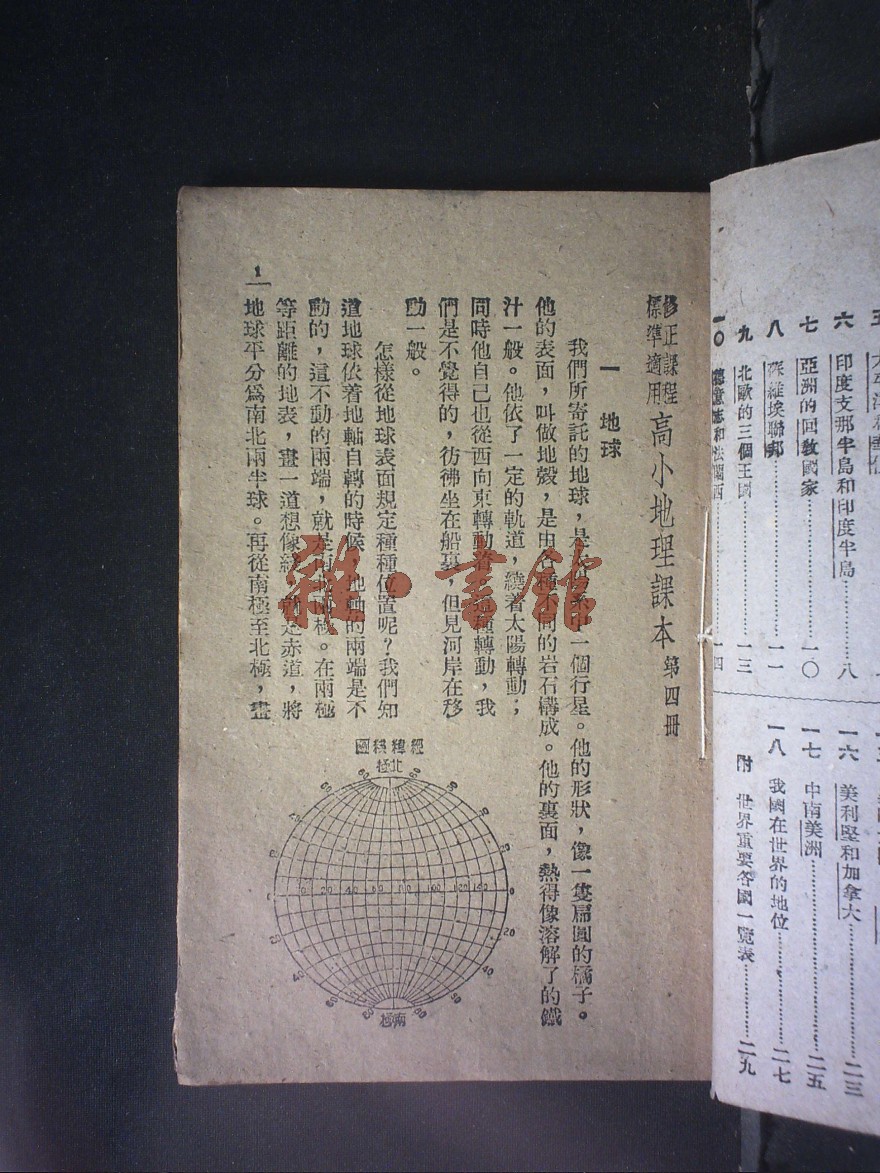 五
六 印度支那半島和印度半島…………八
七 亞洲的回教國家…………一〇
八 蘇維埃聯邦…………一一
九 北歐的三個王國…………一三
一〇 德意志和法蘭西…………一四
一六 美利堅和加拿大…………二三
一七 中南美洲…………二五
一八 我國在世界的地位…………二七
附 世界重要各國一覽表…………二九
修正課程
標準適用
高小地理課本 第四冊
一 地球
我們所寄託的地球，是太陽系中一個行星。他的形狀，像一隻扁圓的橘子。
他的表面，叫做地殼，是由各種不同的岩石構成。他的裏面，熱得像溶解了的鐵
汁一般。他依了一定的軌道，繞着太陽轉動；
同時他自己也從西向東轉動着，這種轉動，我
們是不覺得的，彷彿坐在船裏，但見河岸在移
動一般。
怎樣從地球表面規定種種位置呢？我們知
道地球依着地軸自轉的時候，地軸的兩端是不
動的，這不動的兩端，就是南北兩極。在兩極
等距離的地表，畫一道想像線，就是赤道，將
地球平分爲南北兩半球。再從南極至北極，畫
經緯線圖
北極
南極
1
雜·書館